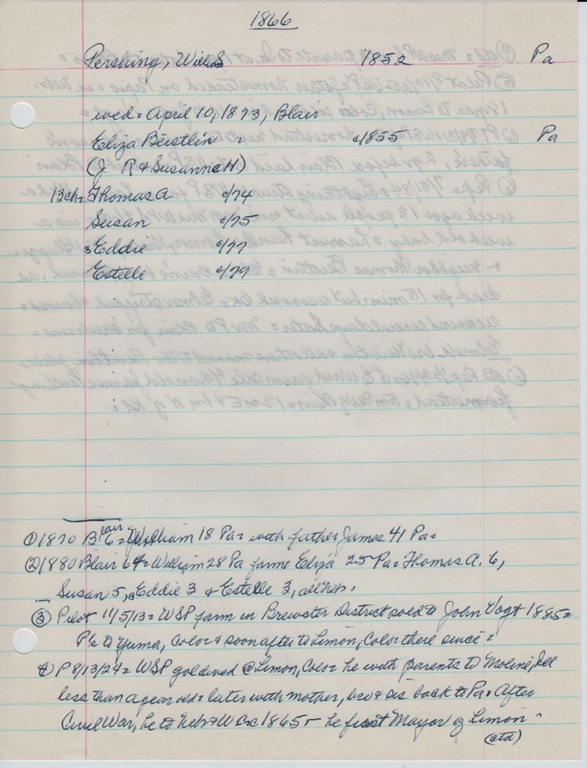 1866
Pershing, Will S c/1852 Pa
wed = April 10, 1873, Blair
Eliza Berstlin = c/1855 Pa
(J R & Susanne H)
13ch = Thomas A c/74
Susan c/75
Eddie c/77
Estelle c/79
① 1870 Blair = William 18 Pa = with father James 41 Pa =
② 1880 Blair 64 = William 28 Pa farms Eliza 25 Pa = Thomas A. 6,
Susan 5, Eddie 3 & Estelle 3, all
③ Pilot 11/5/13 = WSP farm in Brewster District sold to John Vogt 1885 =
P's to Yuma, Colo & soon after to Limon, Colo = there since =
④ P 8/13/24 = WSP gold wed @ Limon, Colo = he with parents to Moline, Ill
less than a year = later with mother, bro & sis back to Pa = After
Civil War, he to Nebr & W Co 1865 = he first Mayor of Limon =
(ctd)